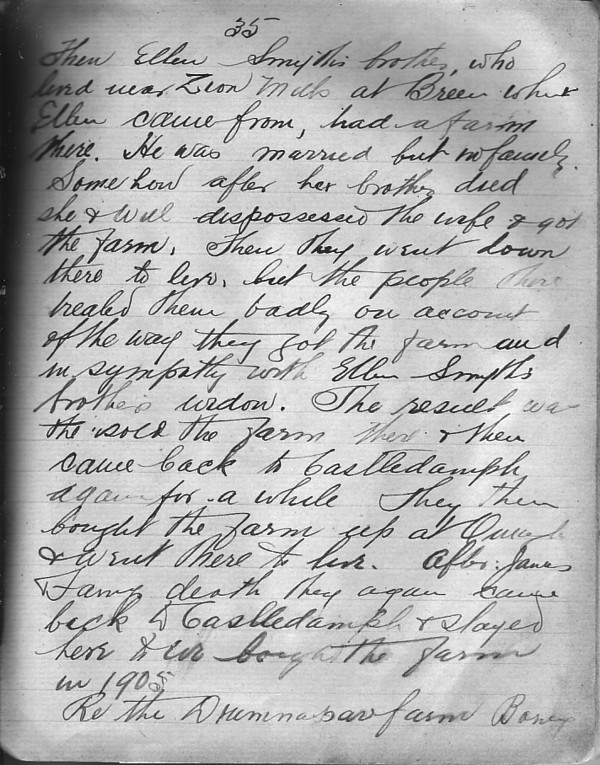 35
Then Ellen Smyth's brother, who
lived near Zion Mills at Breen where
Ellen came from, had a farm
there. He was married but no family.
Some how after her brother died
she & Will dispossessed the wife & got
the farm. Then they went down
there to live, but the people there
treated them badly on account
of the way they got the farm and
in sympathy with Ellen Smyth's
brother's widow. The result was
the sold the farm there & then
came back to Castledamph
again for a while They then
bought the farm up at Omagh
& went there to live. After James
death they again came
back to Castledamph & stayed
here to we bought the farm
in 1905
Re the Drumnaspar farm